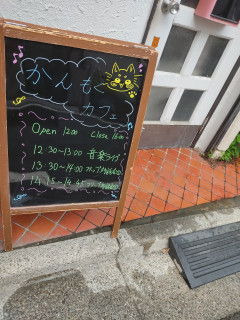 かんも
カフェ
Open 12:00 Close 16:00
12:30~13:00 音楽ライブ
13:30~14:00
14:15~14:45